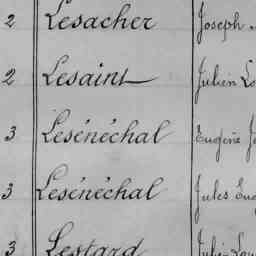 2 Lesacher Joseph
2 Lesaint Julien
3 Lesénéchal Eugène
3 Lesénéchal Jules
3 Lestard